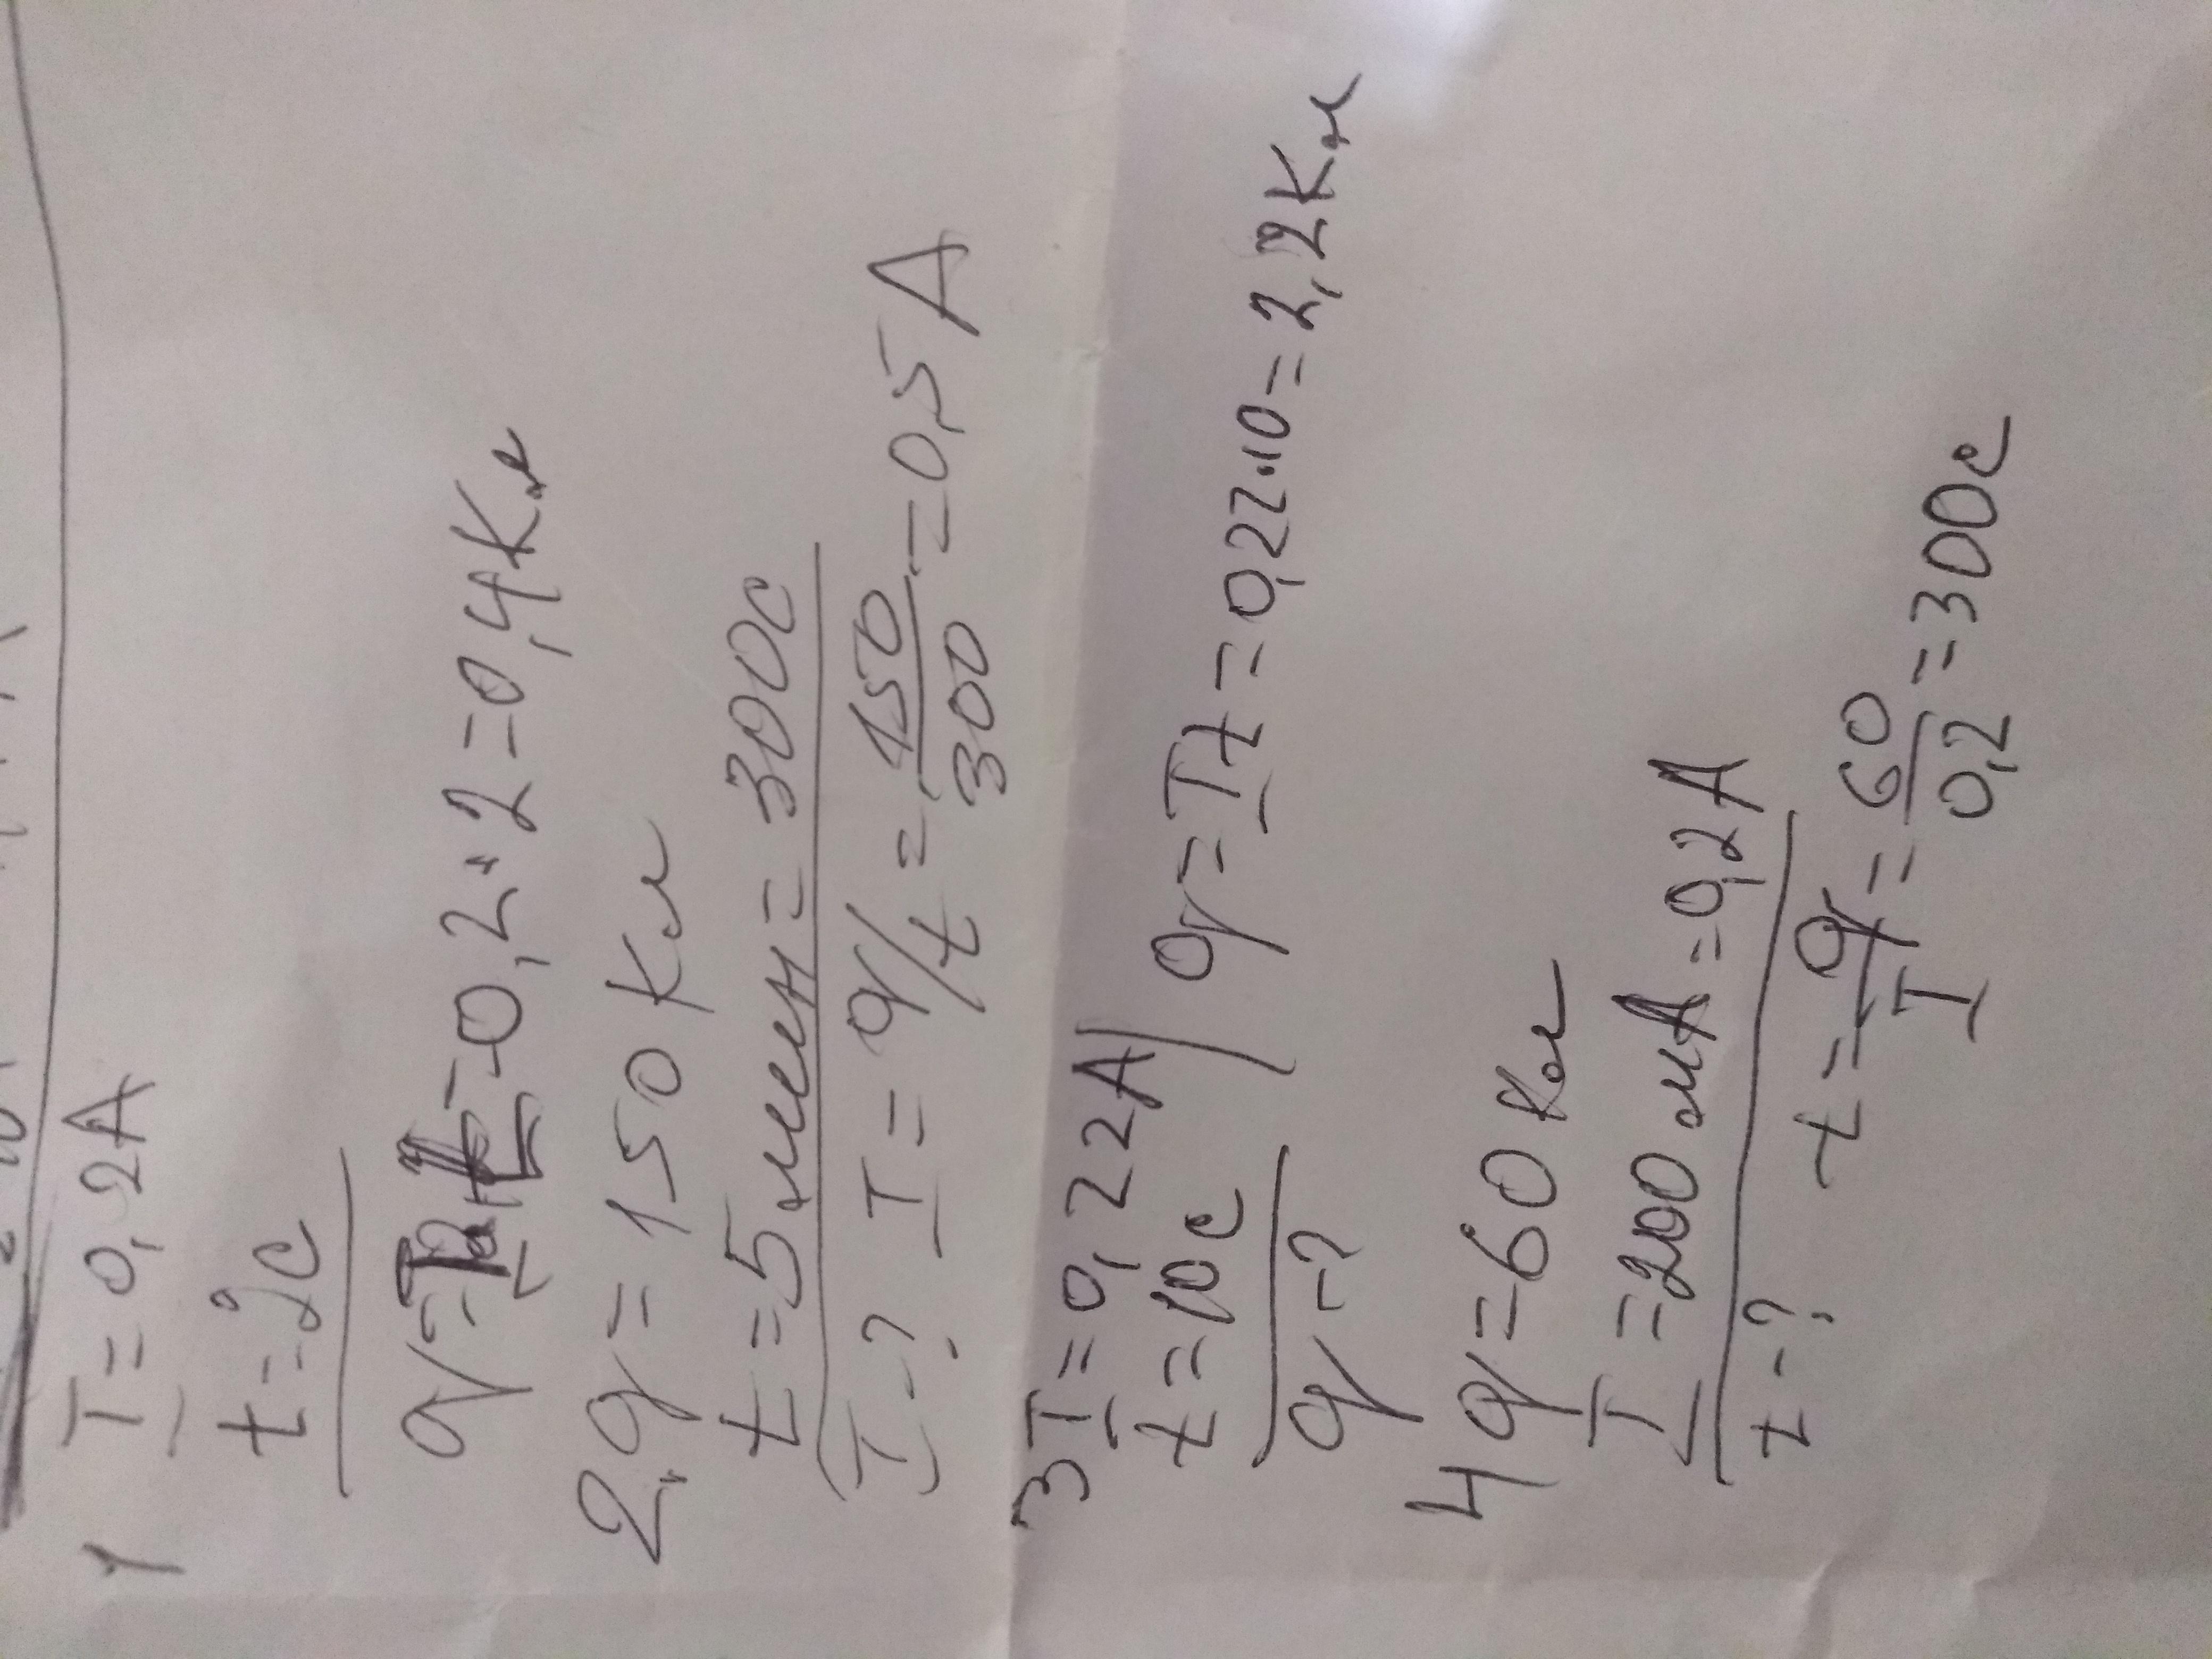 1 I = 0,2A
t = 2c
q = It = 0,2 · 2 = 0,4Кл
2. q = 150 Кл
t = 5 мин = 300c
I - ? I = q/t = 150/300 = 0,5 A
3 I = 0,22A
t = 10c
q = It = 0,22·10 = 2,2Кл
q - ?
4 q = 60 Кл
I = 200 мА = 0,2 A
t - ? t = q/I = 60/0,2 = 300c